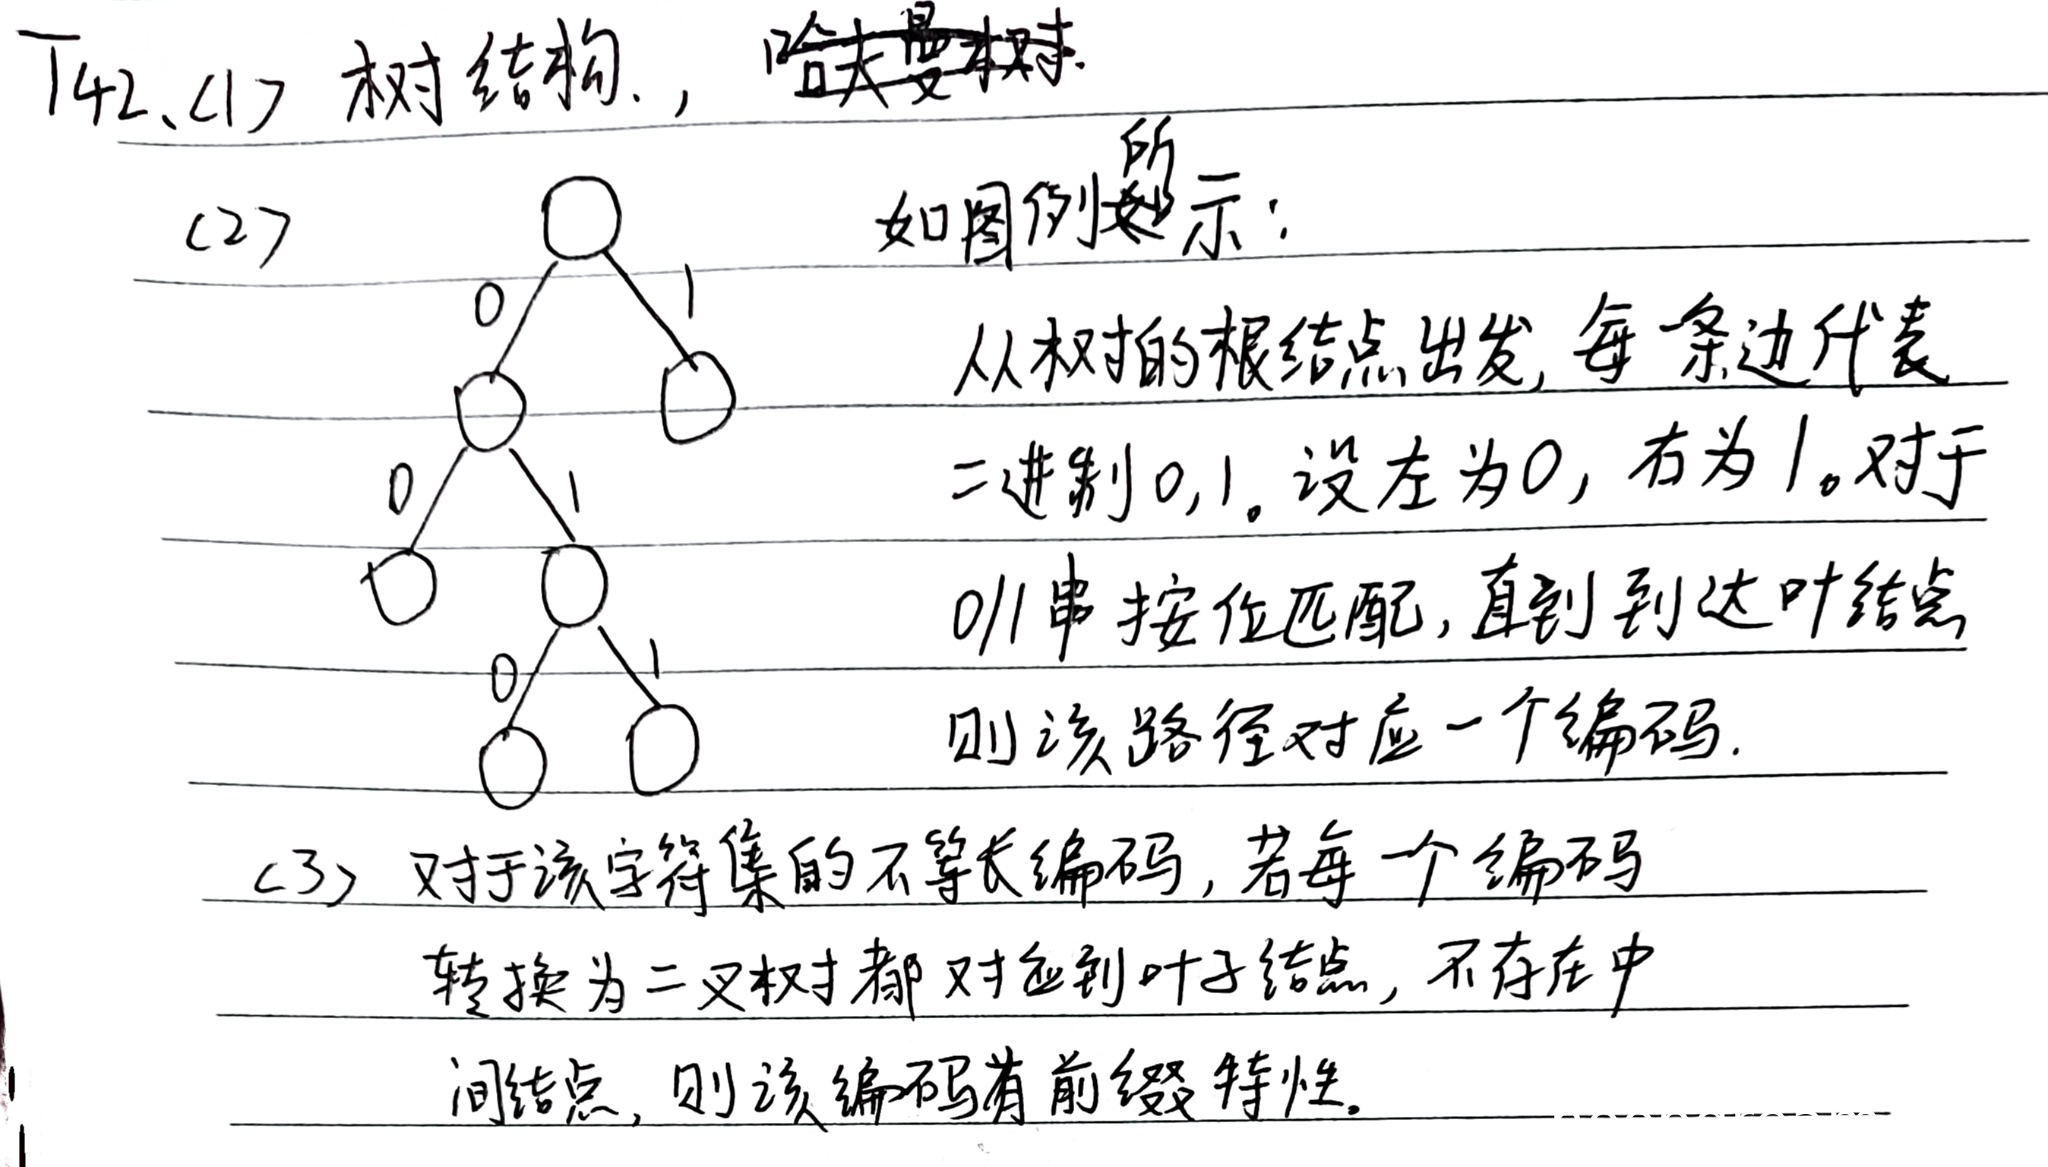 T42、(1) 树结构.，哈夫曼树.
(2)
如图例所示：
0 1
从树的根结点出发，每一条边代表
0 1
二进制0,1。设左为0，右为1。对于
0/1串按位匹配，直到到达叶结点
0 1
则该路径对应一个编码.
(3) 对于该字符集的不等长编码，若每一个编码
转换为二叉树都对应到叶子结点，不存在中
间结点，则该编码有前缀特性。